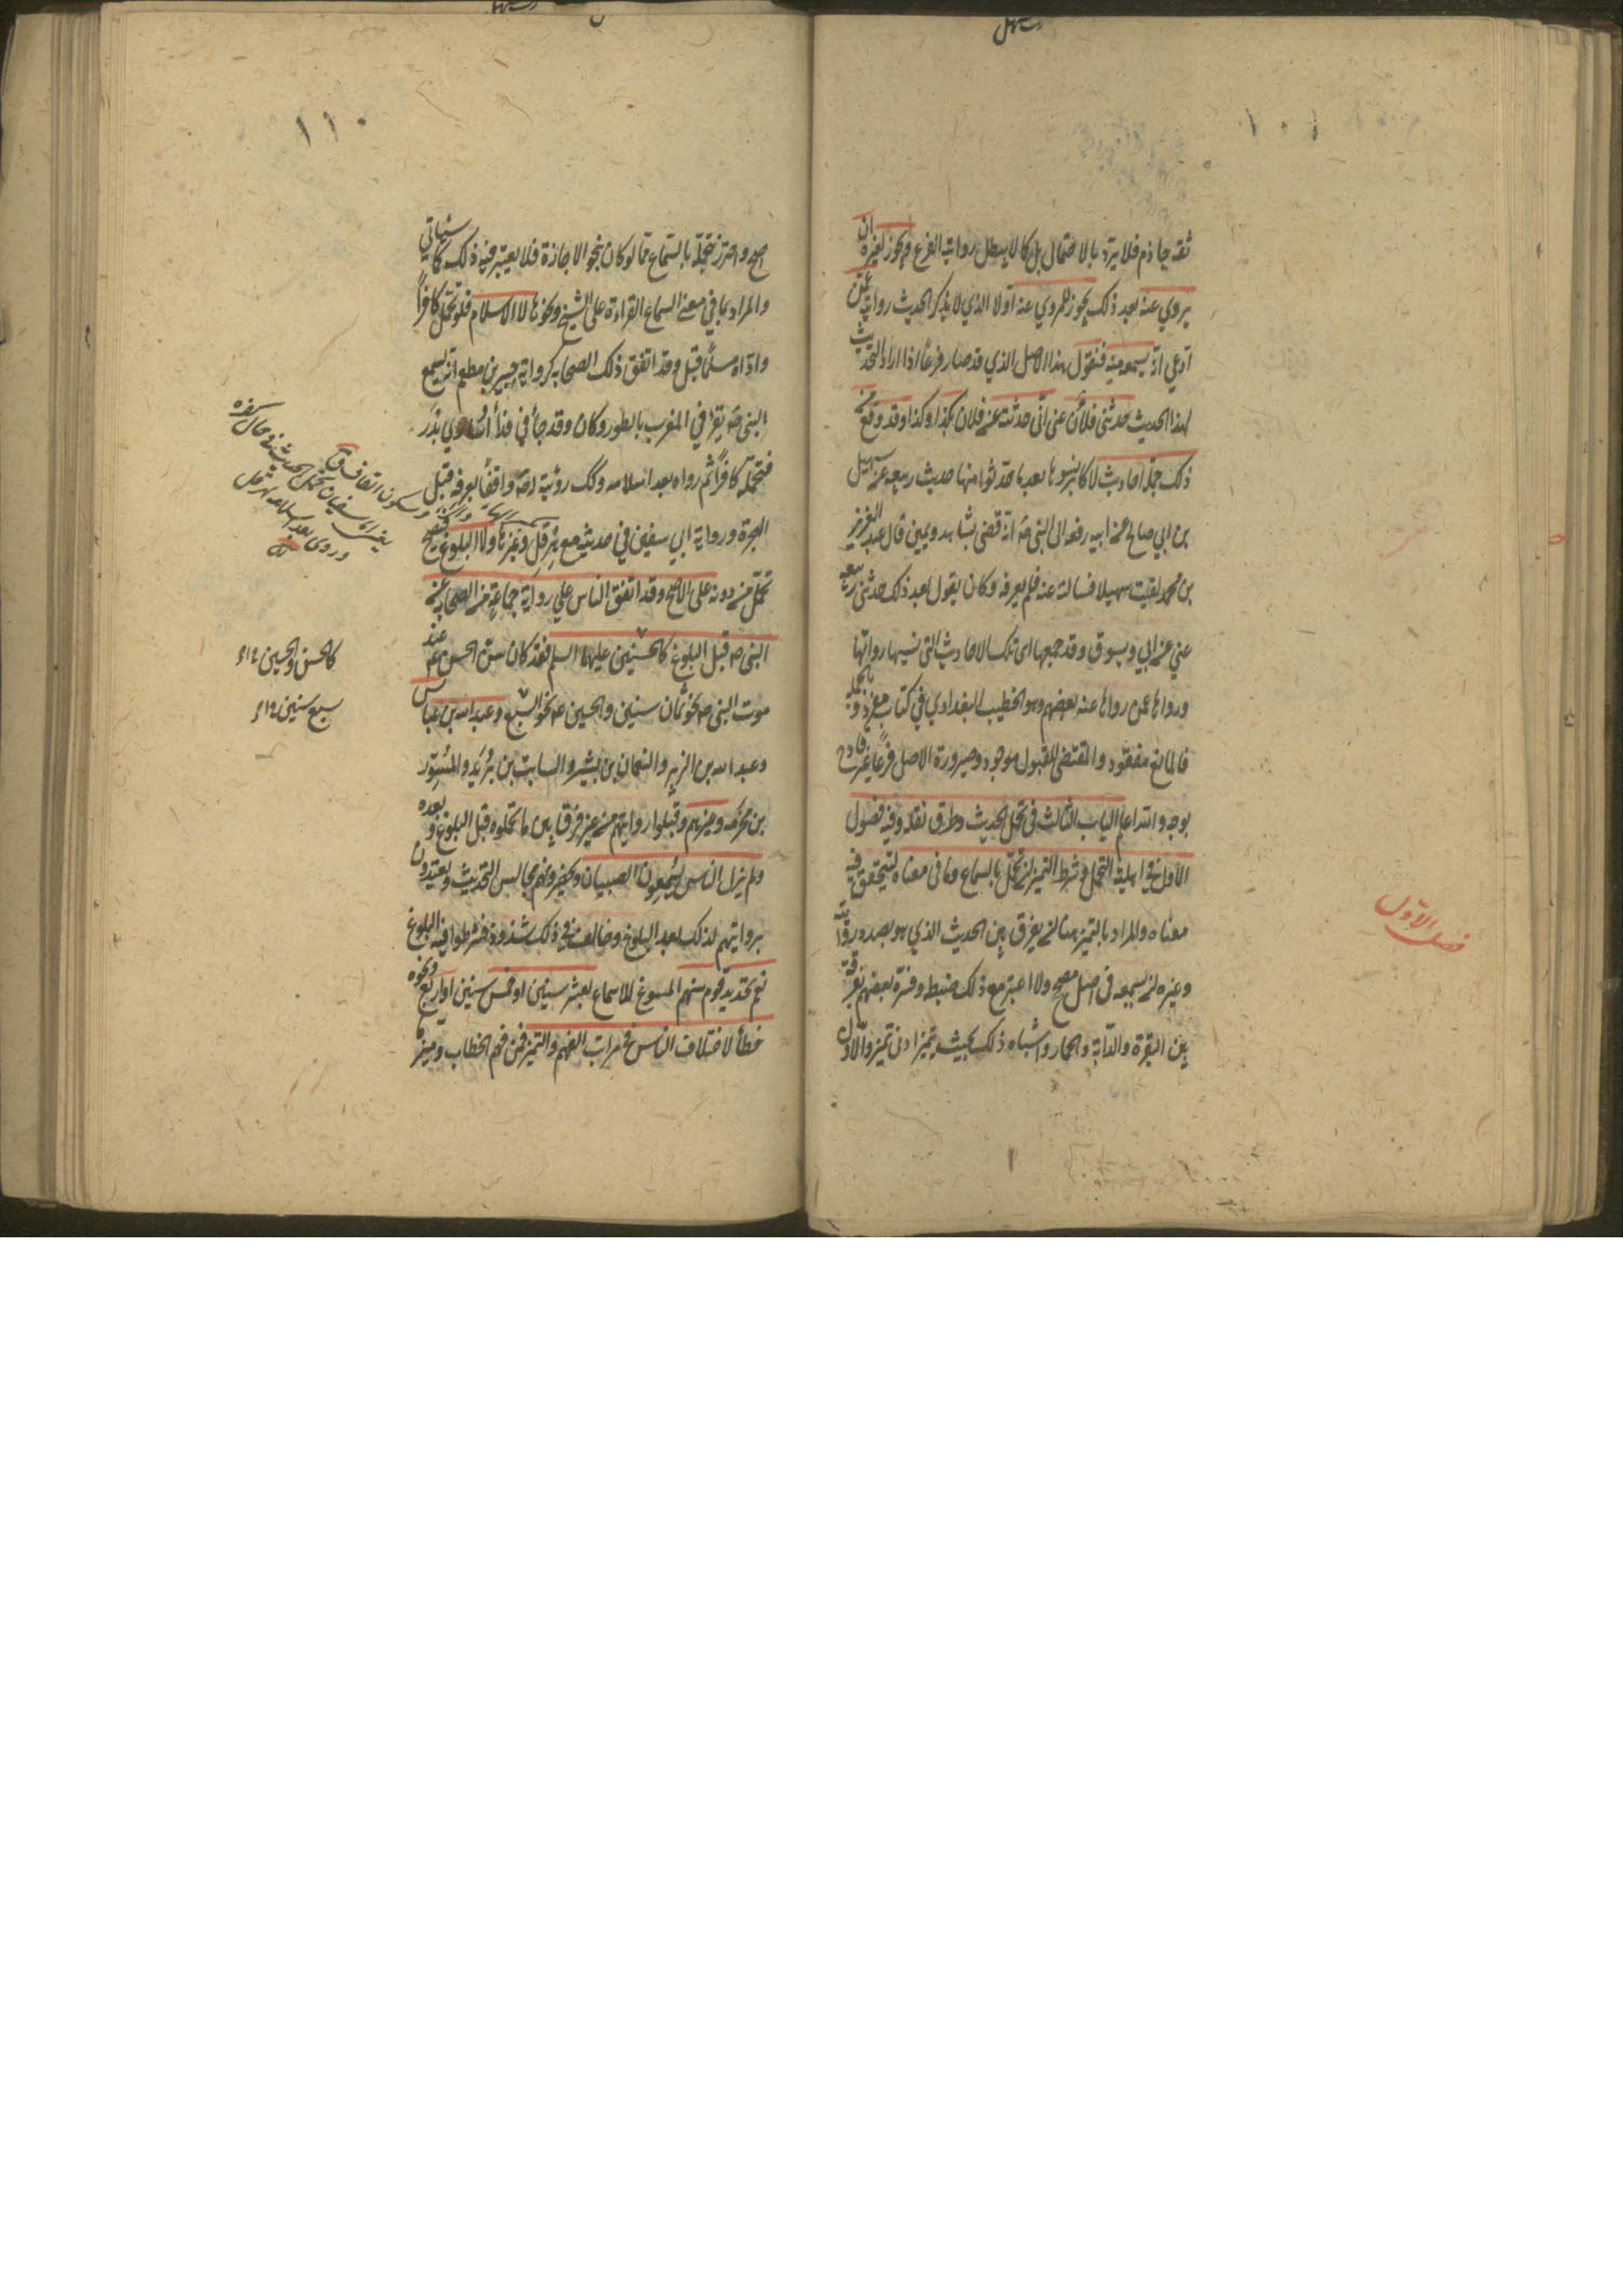 ١٠٩
ثقة جازم فلا يرد بالاحتمال بل كما لا يبطل رواية الفرع ويجوز لغيره ان
يروي عنه بعد ذلك يجوز للمروي عنه اولا الذي لا يذكر الحديث روايته عمن
ادعي انه سمعه منه فنقول هذا الاصل الذي قد صار فرعاً اذا اراد التحديث
بهذا الحديث حدثني فلان عني اني حدثته عن فلان بكذا وكذا وقد وقع من
ذلك جملة احاديث لاكابر نسوها بعد ما حدثوا منها حديث ربيعة عن سهيل
بن ابي صالح عن ابيه رفعه الى النبي ص انه قضى بشاهد ويمين قال عبد العزيز
بن محمد لقيت سهيلا فسالته عنه فلم يعرفه وكان يقول بعد ذلك حدثني ربيعة
عني عن ابي ويسوق وقد جمعها اى تلك الاحاديث التي نسيها رواتها
ورواها عمن رواها عنه بعضهم وهو الخطيب البغدادي في كتاب مفرد وبالجملة
فالمانع مفقود والمقتضى للقبول موجود وصيرورة الاصل فرعاً غير قادح
بوجه والله اعلم الباب الثالث في تحمل الحديث وطرق نقله وفيه فصول
الاول في اهلية التحمل وشرطه التمييز ان تحمل بالسماع وما في معناه ليتحقق فيه
معناه والمراد بالتمييز هنا ان يفرق بين الحديث الذي هو بصدد روايته
وغيره ان سمعه في اصل مصحح والا اعتبر مع ذلك ضبطه وفسره بعضهم بفرقه
بين البقرة والدابة والحمار واشباه ذلك بحيث يميز ادنى تمييز والاول
فصل الاول
١١٠
اصح واحترز بتحمله بالسماع عما لو كان بنحو الاجازة فلا يعتبر فيه ذلك كما سيأتي
والمراد بما في معنى السماع القراءة على الشيخ ونحوها لا الاسلام فلو تحمل كافراً
واداه مسلماً قبل وقد اتفق ذلك لصحابة كرواية جبير بن مطعم انه سمع
النبي ص يقرأ في المغرب بالطور وكان وقد جاء في فداء اسارى بدر
فتحمله كافراً ثم رواه بعد اسلامه وكك رؤيته له ص واقفاً بعرفة قبل
الهجرة ورواية ابي سفين في حديثه مع هرقل وغيرها ولا البلوغ فيصح
تحمل من دونه على الاصح وقد اتفق الناس علي رواية جماعة من الصحابة عن
النبي ص قبل البلوغ كالحسنين عليهما السلم فقد كان سن الحسن ع عند
موت النبي ص نحو ثمان سنين والحسين ع نحو السبع وعبد الله بن عباس
وعبد الله بن الزبير والنعمان بن بشير والسايب بن يزيد والمسور
بن مخرمه وغيرهم وقبلوا روايتهم من غير فرق بين ما تحملوه قبل البلوغ وبعده
ولم يزل الناس يسمعون الصبيان ويحضرونهم مجالس التحديث ويعتدون
بروايتهم لذلك بعد البلوغ وخالف في ذلك شذوذ فشرطوا فيه البلوغ
نعم تحديد قوم منهم المسوغ للاسماع بعشر سنين او خمس سنين او اربع ونحوه
خطأ لاختلاف الناس في مراتب الفهم والتمييز فمن فهم الخطاب وميز ما
وسكون القاف ق
يعنى ابا سفيان تحمل الحديث في حال كفره
وروى بعد اسلامه
كالحسن والحسين
سبع سنين